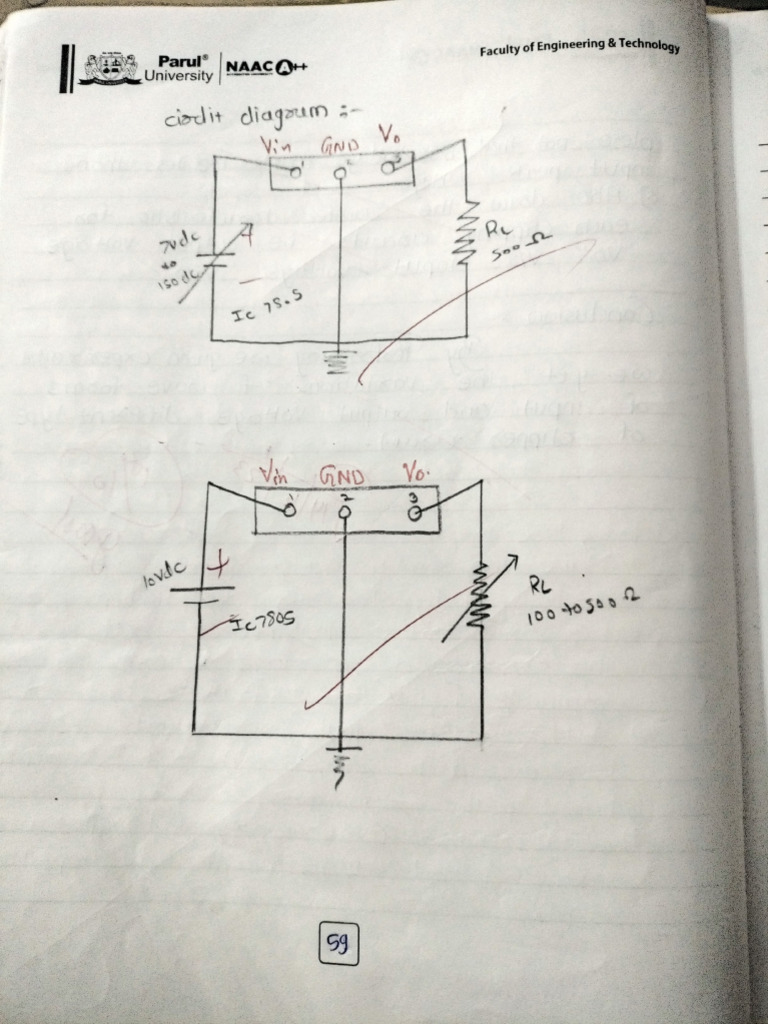 Parul®
University
NAAC A++
Faculty of Engineering & Technology
ciodit diagoum :-
Vin GND Vo
1 2 3
7vdc
to
150dc
+
-
Ic 7805
RL
500 Ω
Vin GND Vo.
1 2 3
10vdc
+
Ic7805
RL
100 to 500 Ω
59